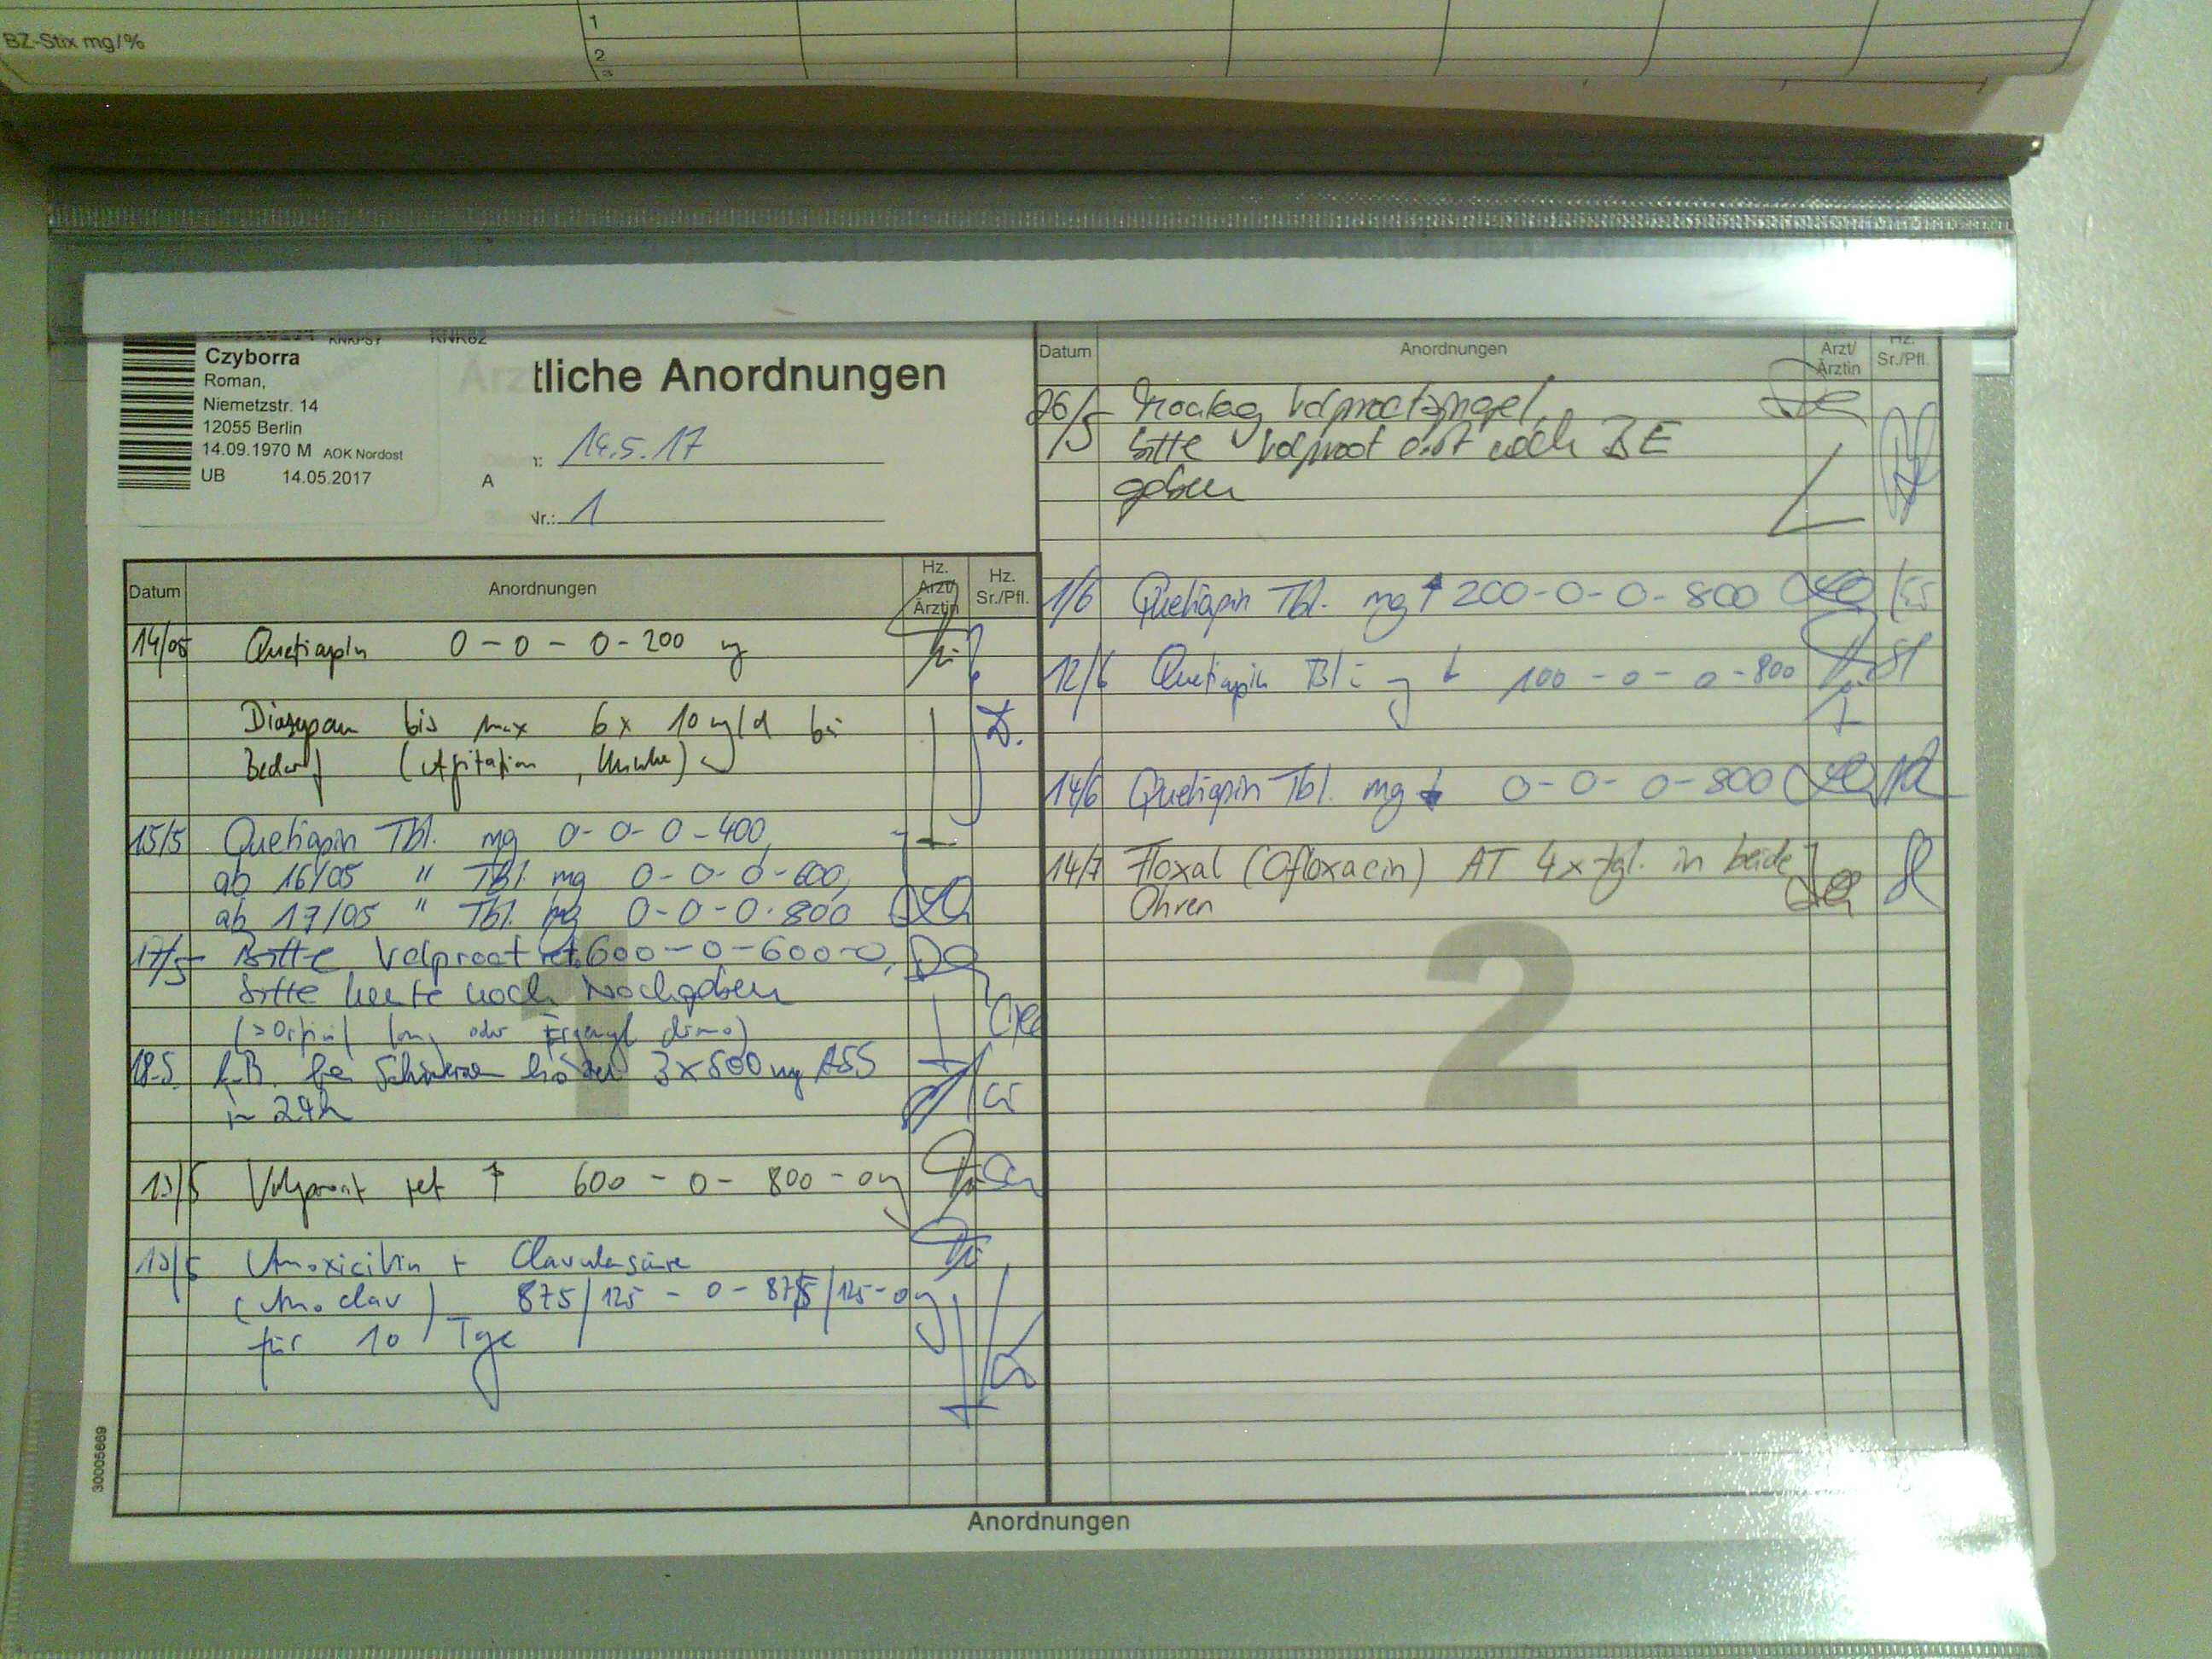 BZ-Stix mg/%
1
2
3
KNKPSY KNK82
Czyborra
Roman,
Niemetzstr. 14
12055 Berlin
14.09.1970 M AOK Nordost
UB 14.05.2017
A
Ärztliche Anordnungen
14.5.17
Nr.: 1
Datum Anordnungen Hz. Arzt/ Ärztin Hz. Sr./Pfl.
14/05 Quetiapin 0 - 0 - 0 - 200 mg
Diazepam bis max 6 x 10 mg/d bei
Bedarf (Agitation, Unruhe)
15/5 Quetiapin Tbl. mg 0-0-0-400,
ab 16/05 " Tbl. mg 0-0-0-600,
ab 17/05 " Tbl. mg 0-0-0-800
17/5 Bitte Valproat ret. 600-0-600-0,
bitte heute noch nachgeben
(>Orfiril long oder Ergenyl chrono)
18.5. b. B. bei Schmerzen 3x500mg ASS
in 24h
Valproat ret ↑ 600 - 0 - 800 - 0 mg
Amoxicillin + Clavulansäure
(Amoclav) 875/125 - 0 - 875/125 - 0 mg
für 10 Tge
30005669
1
Datum Anordnungen Hz. Arzt/ Ärztin Hz. Sr./Pfl.
26/5 Montag Valproatspiegel,
bitte Valproat erst nach BE
geben
1/6 Quetiapin Tbl. mg ↑ 200-0-0-800
12/6 Quetiapin Tbl. mg ↓ 100-0-0-800
14/6 Quetiapin Tbl. mg ↓ 0-0-0-800
14/7 Floxal (Ofloxacin) AT 4x tgl. in beide
Ohren
2
Anordnungen